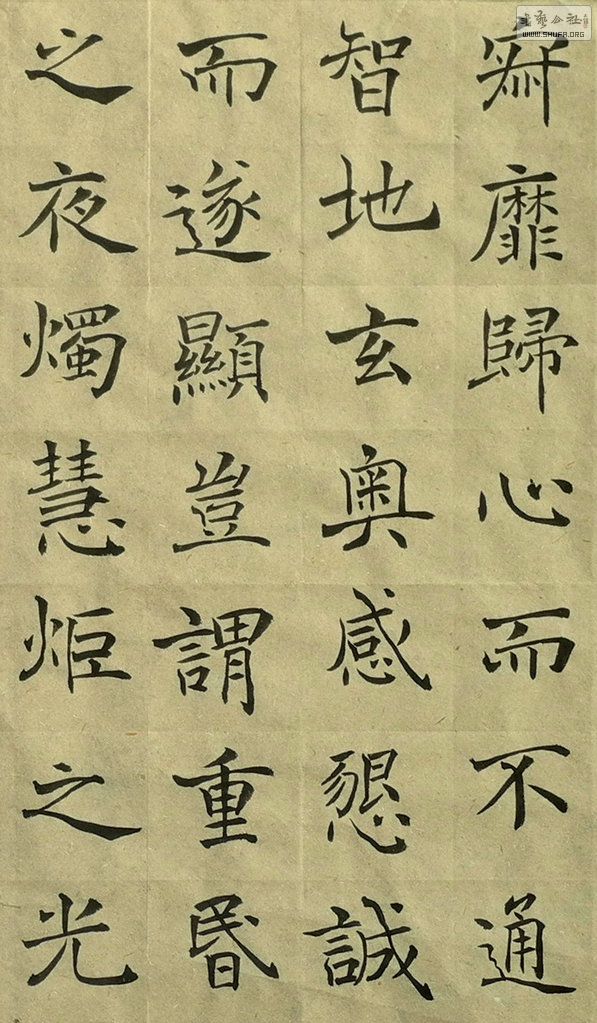 寂靡歸心而不通
智地玄奥感懇誠
而遂顯豈謂重昬
之夜燭慧炬之光
書藝公社
WWW.SHUFA.ORG